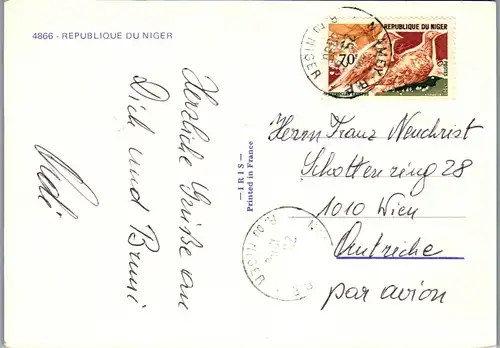 4866 - REPUBLIQUE DU NIGER
Herzliche Grüße an
Dich und Bruni
- IRIS -
Printed in France
70F
POSTES
Herrn Franz Neuchrist
Schottenring 28
1010 Wien
Autriche
par avion
NIAMEY R.P.
R. DU NIGER
R. DU NIGER